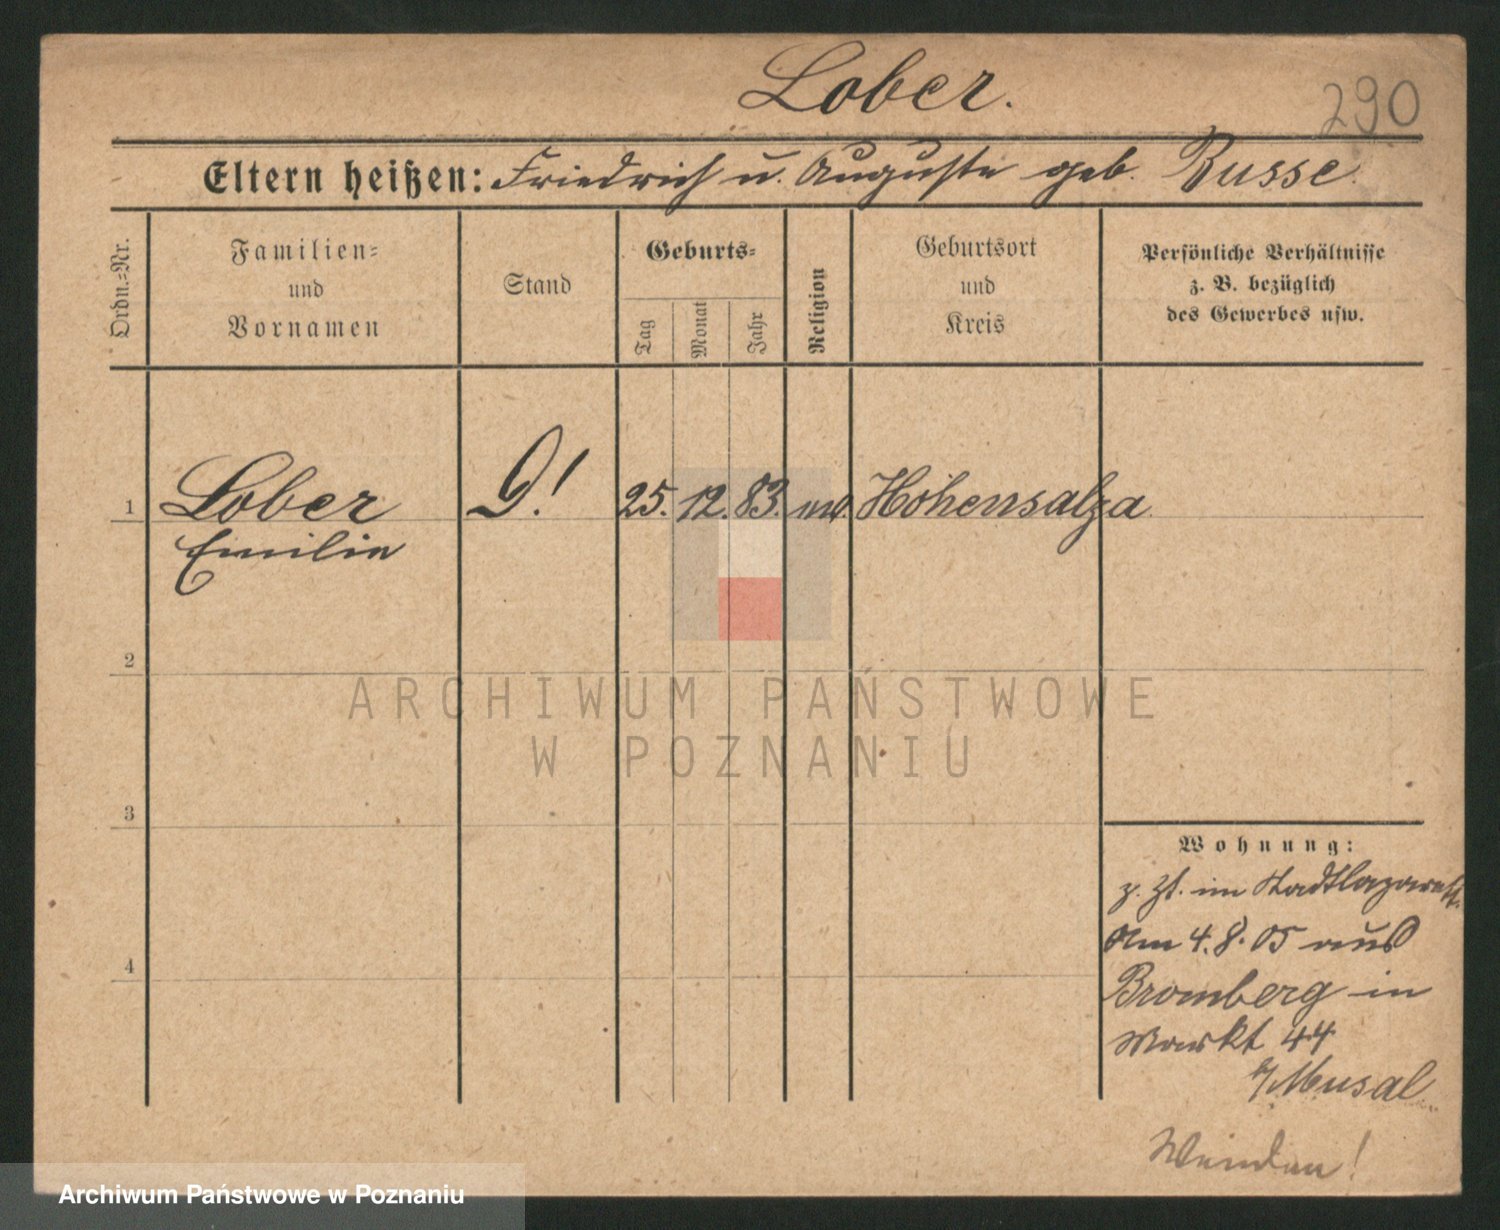 Lober.
290
Eltern heißen: Friedrich u. Auguste geb. Busse.
Ordn.=Nr.
Familien=
und
Vornamen
Stand
Geburts=
Tag
Monat
Jahr
Religion
Geburtsort
und
Kreis
Persönliche Verhältnisse
z. B. bezüglich
des Gewerbes usw.
1 Lober 25. 12. 83. Hohensalza
Emilie
2
3
4
ARCHIWUM PAŃSTWOWE
W POZNANIU
Wohnung:
z. Zt. im Stadtlazarett.
Am 4.8.05 aus
Bromberg in
Markt 44
b/Musal
Wenden!
Archiwum Państwowe w Poznaniu